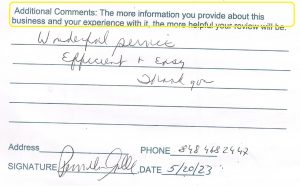 Additional Comments: The more information you provide about this
business and your experience with it, the more helpful your review will be.
Wonderful service
Efficient + Easy
Thank you
Address
PHONE 848 468 2442
SIGNATURE DATE 5/20/23